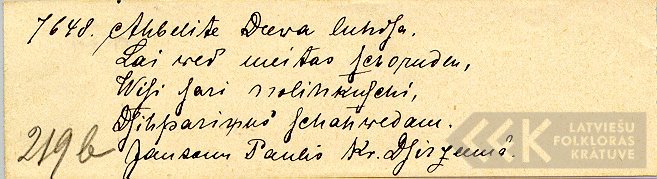 7648. Ahbelite Deewa luhdsa.
Lai wed meitas schoruden,
Wisi sari nolihkuschi,
Dsihparinus schahwedam.
219b Jansons Paulis Kr. Dsirzeemā.
LATVIEŠU
FOLKLORAS
KRATUVE